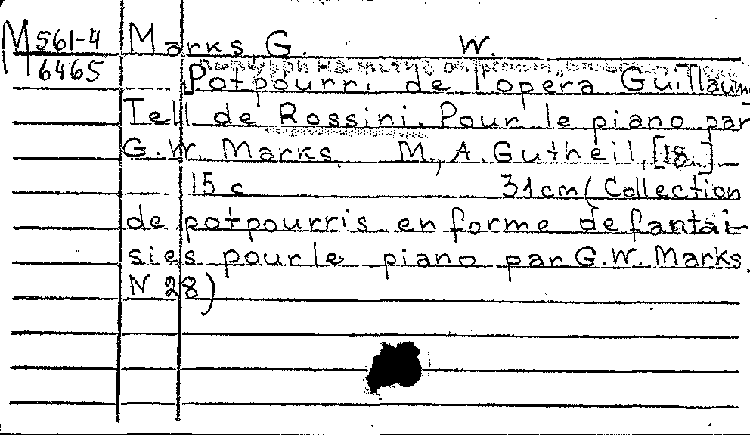 М 561-4
6465
Marks G. W.
Potpourri de l'opéra Guillaume
Tell de Rossini. Pour le piano par
G.W. Marks. M., A. Gutheil, [18..]
15 c 31cm (Collection
de potpourris en forme de fantai-
sies pour le piano par G.W. Marks.
N 28)